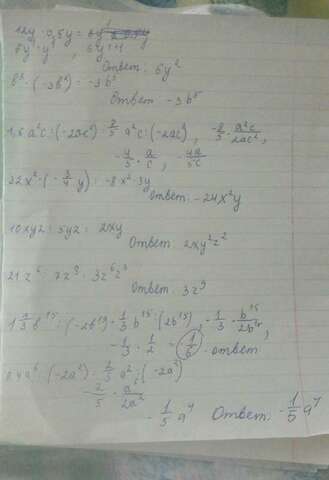 12y · 0,5y = 6y
6y · y¹, 6y¹⁺¹
Ответ: 6y²
b³ · (-3b²) = -3b⁵
Ответ -3b⁵
1,6 a²c : (-2ac²) = 8/5 a²c : (-2ac²), -8/5 · a²c/2ac²,
-4/5 · a/c, -4a/5c
32x² · (-3/4 y) = -8x² · 3y
Ответ: -24x²y
10xyz : 5yz = 2xy
Ответ 2xy²z²
21z⁶ : 7z³ = 3z⁶z³
Ответ. 3z⁹
1/3 b¹⁵ : (-2b¹⁵) = 1/3 b¹⁵ : (2b¹⁵), -1/3 · b¹⁵/2b¹⁵,
-1/3 · 1/2 = -1/6. ответ
0,4a⁶ : (-2a²) = 2/5 a² : (-2a²)
-2/5 · a/2a²
-1/5 a⁴ Ответ: -1/5 a⁴